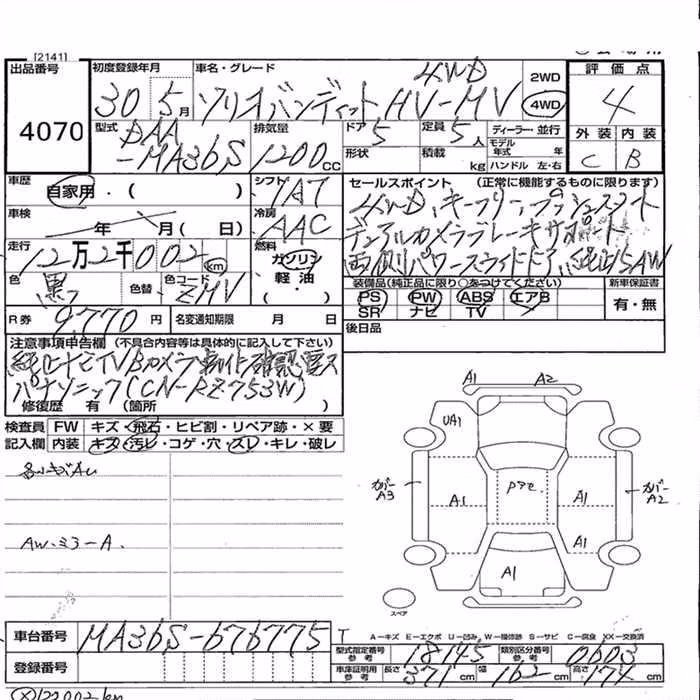 [2141]
出品番号 初度登録年月 車名・グレード 4WD 2WD 評価点
4070 30 5月 ソリオバンディット HV-MV 4WD 4
型式 DAA-MA36S 排気量 1200CC ドア 5 定員 5人 ディーラー・並行 外装 内装
形状 積載 kg モデル年式 年 ハンドル 左・右 C B
車歴 自家用・( ) シフト IAT セールスポイント (正常に機能するものに限ります)
車検 年 月( 日) 冷房 AAC 4WD、キーフリー、プッシュスタート
走行 12万2千002km 燃料 ガソリン・軽油・( ) デュアルカメラブレーキサポート
両側パワースライドドア、純正15AW
色 黒 色替 色コード ZMV 装備品(純正品に限り○をつけてください) 新車保証書
PS PW ABS エアB 有・無
SR ナビ TV
R券 9,770円 名変通知期限 月 日 後日品
注意事項申告欄 (不具合内容等は具体的に記入して下さい)
純正ナビTVBカメラ
パナソニック(CN-RZ753W)
修復歴 有 (箇所 )
検査員記入欄 FW キズ・飛石・ヒビ割・リペア跡・×要
内装 キズ・汚レ・コゲ・穴・スレ・キレ・破レ
AW.ミラーA.
A1 A2
UA1
カバーA3 A1 アンテ A1 カバーA2
A1
A1
スペア
車台番号 MA36S-676775
登録番号
A-キズ E-エクボ U-凹み W-補修跡 S-サビ C-腐食 XX-交換済
型式指定番号 参考 18145 類別区分番号 参考 0603
車庫証明用 参考 長さ 371cm 幅 162cm 高さ 174cm
122002km